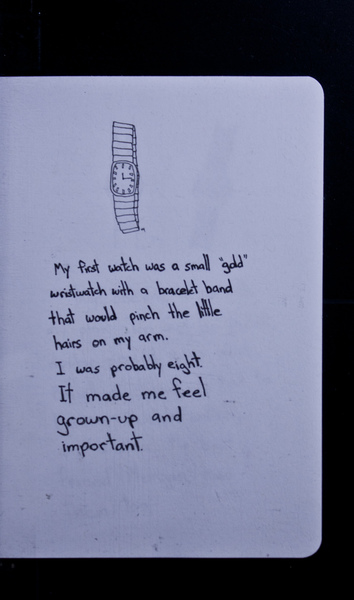 My first watch was a small "gold"
wristwatch with a bracelet band
that would pinch the little
hairs on my arm.
I was probably eight.
It made me feel
grown-up and
important.